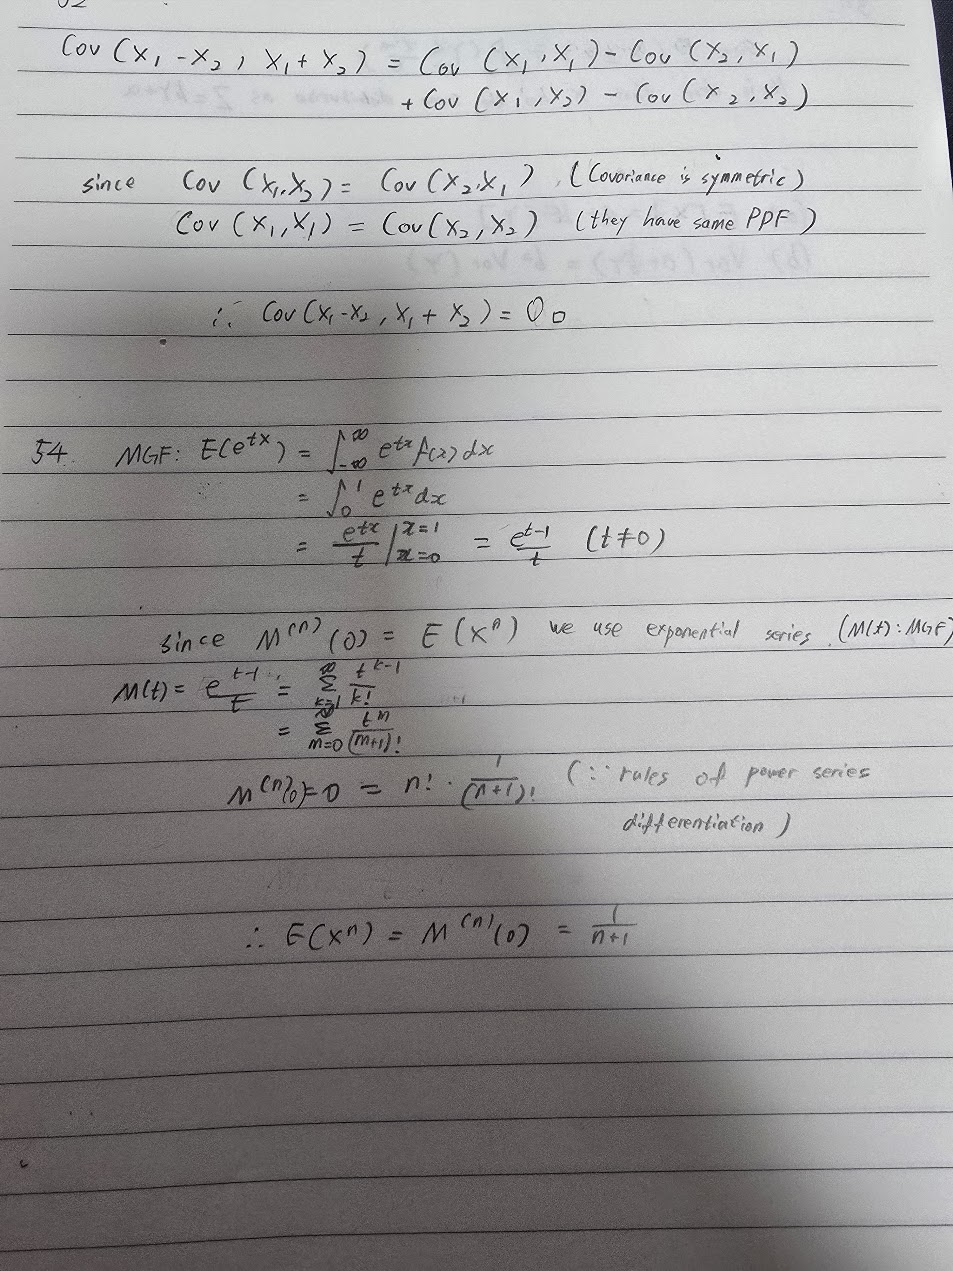 Cov (X₁ - X₂, X₁ + X₂) = Cov (X₁, X₁) - Cov (X₂, X₁)
+ Cov (X₁, X₂) - Cov (X₂, X₂)
since Cov (X₁, X₂) = Cov (X₂, X₁) (Covariance is symmetric)
Cov (X₁, X₁) = Cov (X₂, X₂) (they have same PDF)
∴ Cov (X₁-X₂, X₁ + X₂) = 0 □
54. MGF: E(e^{tx}) = ∫_{-∞}^{∞} e^{tx} f(x) dx
= ∫_0^1 e^{tx} dx
= e^{tx}/t |_{x=0}^{x=1} = e^{t-1}/t (t≠0)
since M^{(n)} (0) = E (X^n) we use exponential series (M(t): MGF)
M(t) = e^{t-1}/t = Σ_{k=1}^{∞} t^{k-1}/k!
= Σ_{m=0}^{∞} t^m/(m+1)!
= n! · 1/(n+1)! (∵ rules of power series
differentiation)
∴ E(X^n) = M^{(n)}(0) = 1/(n+1)